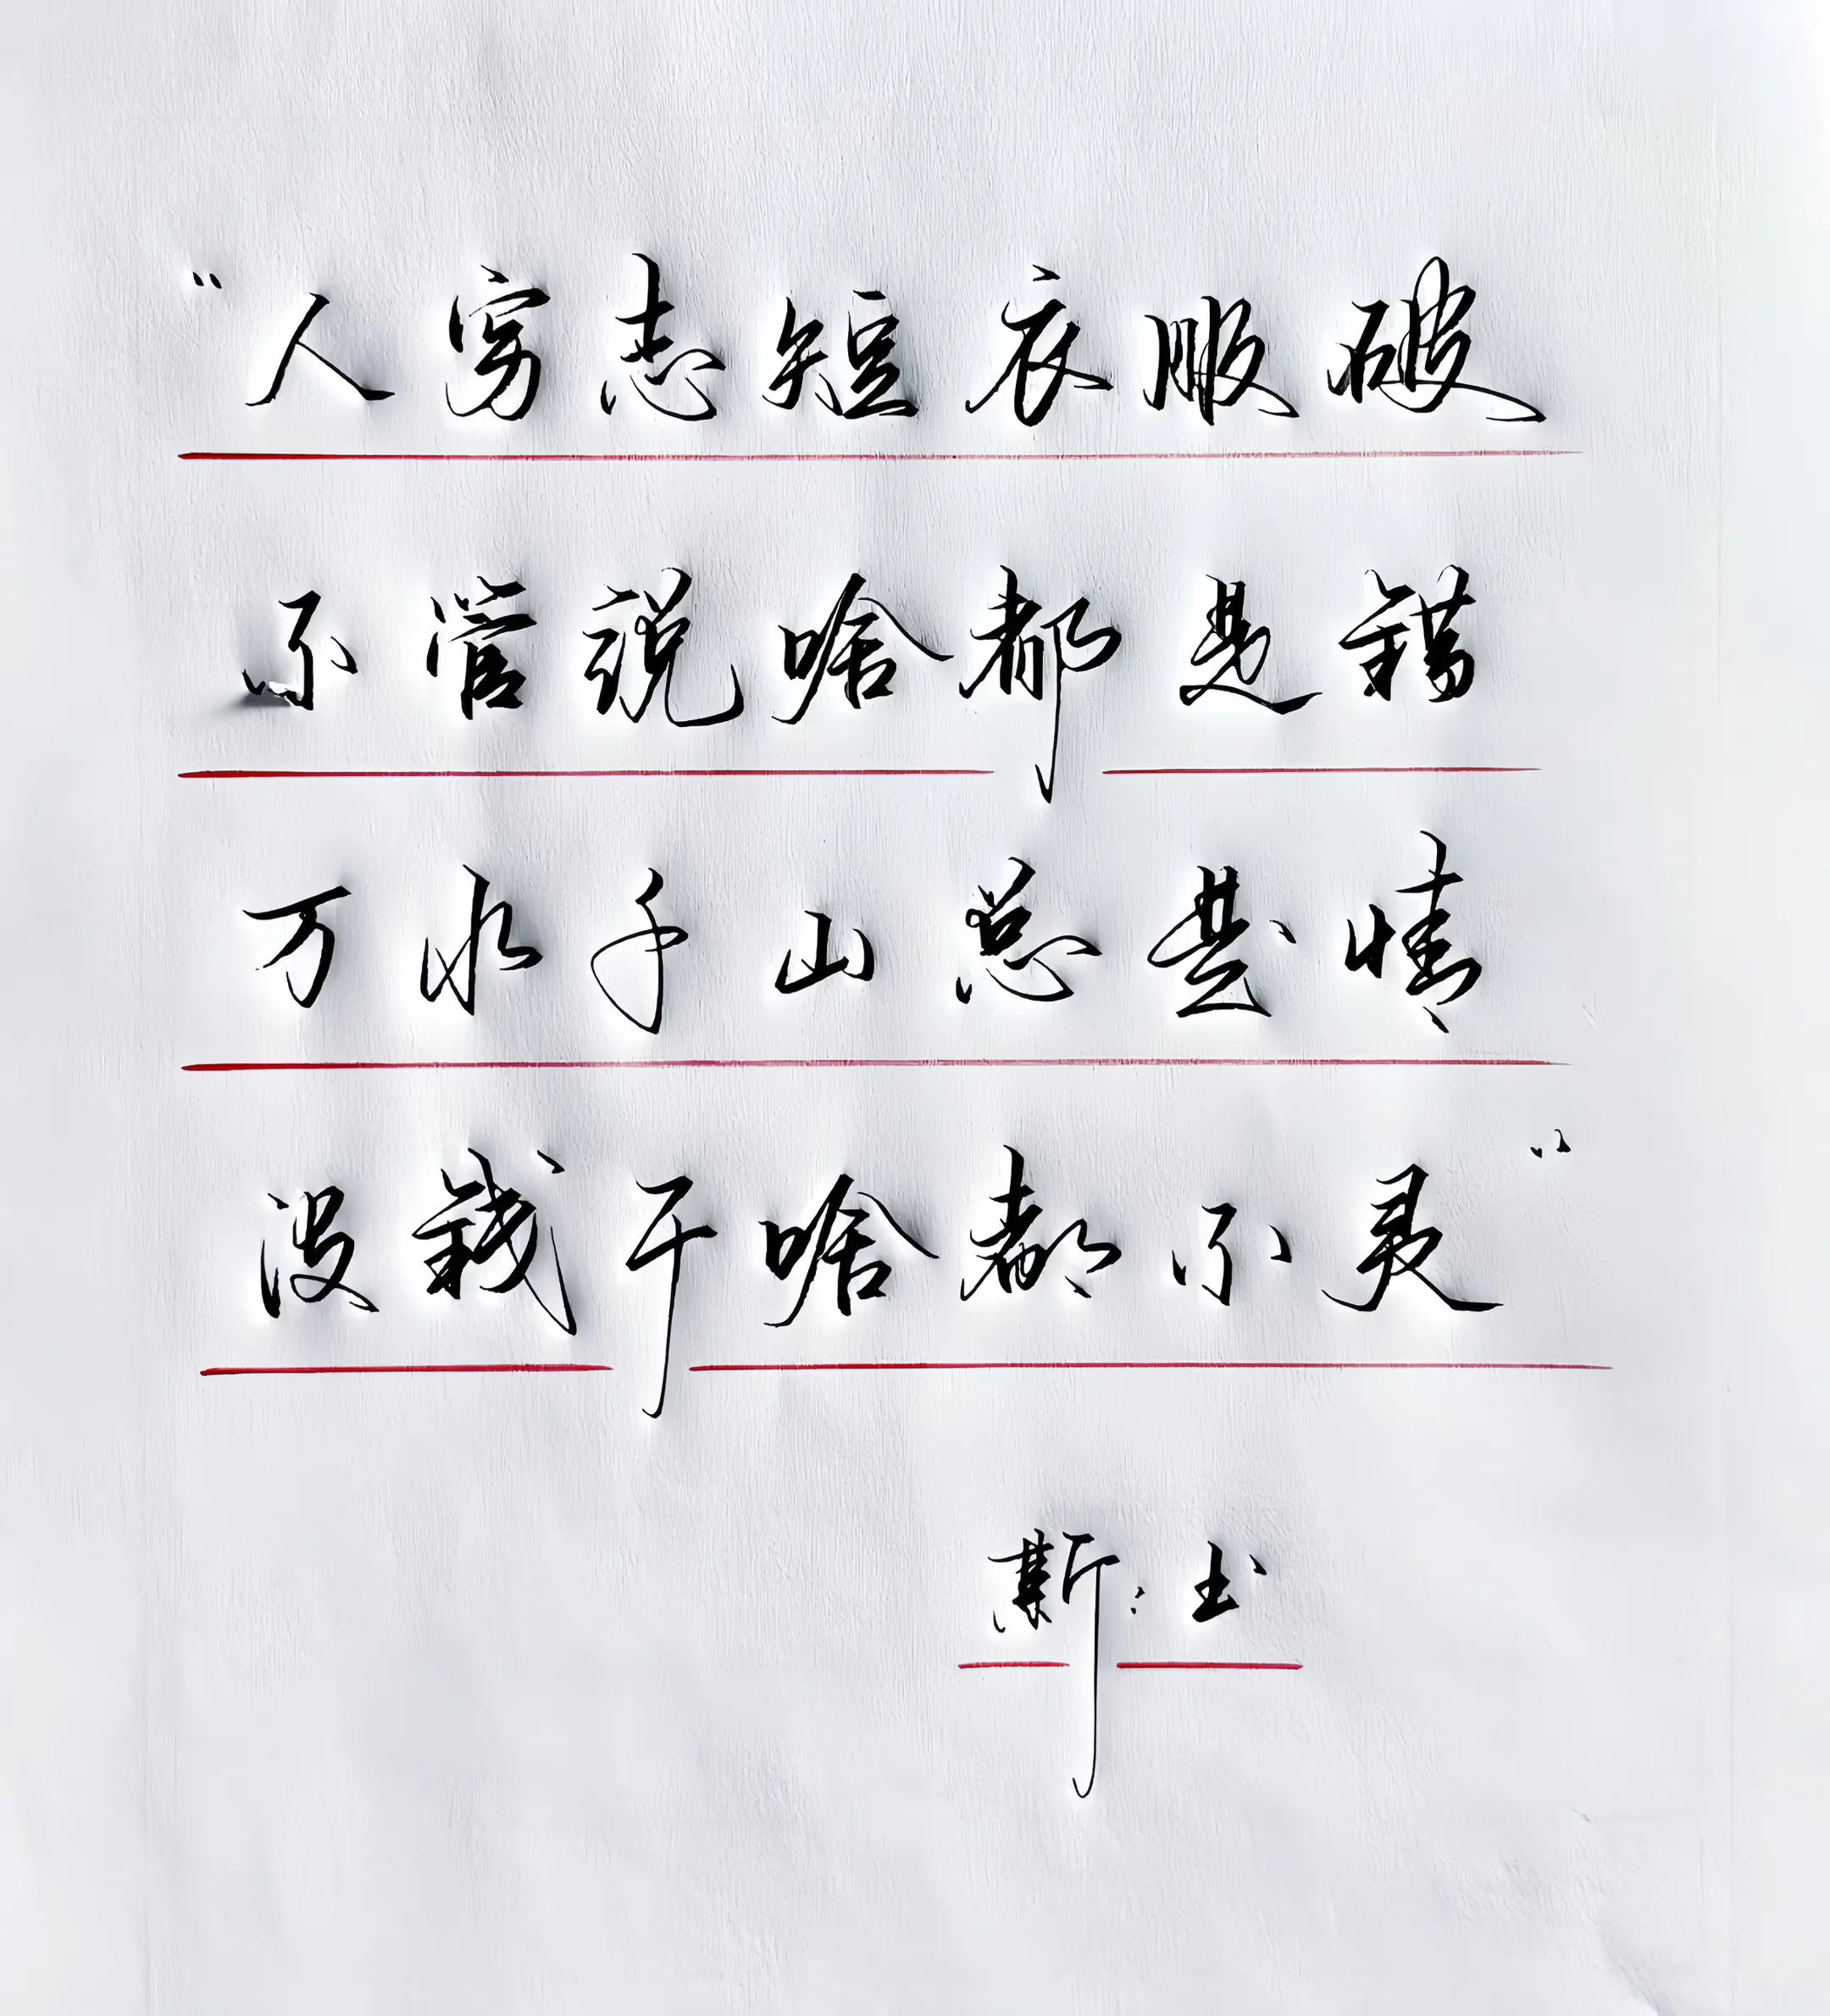 “人穷志短衣服破
不管说啥都是错
万水千山总是情
没钱干啥都不灵”
斯:玉